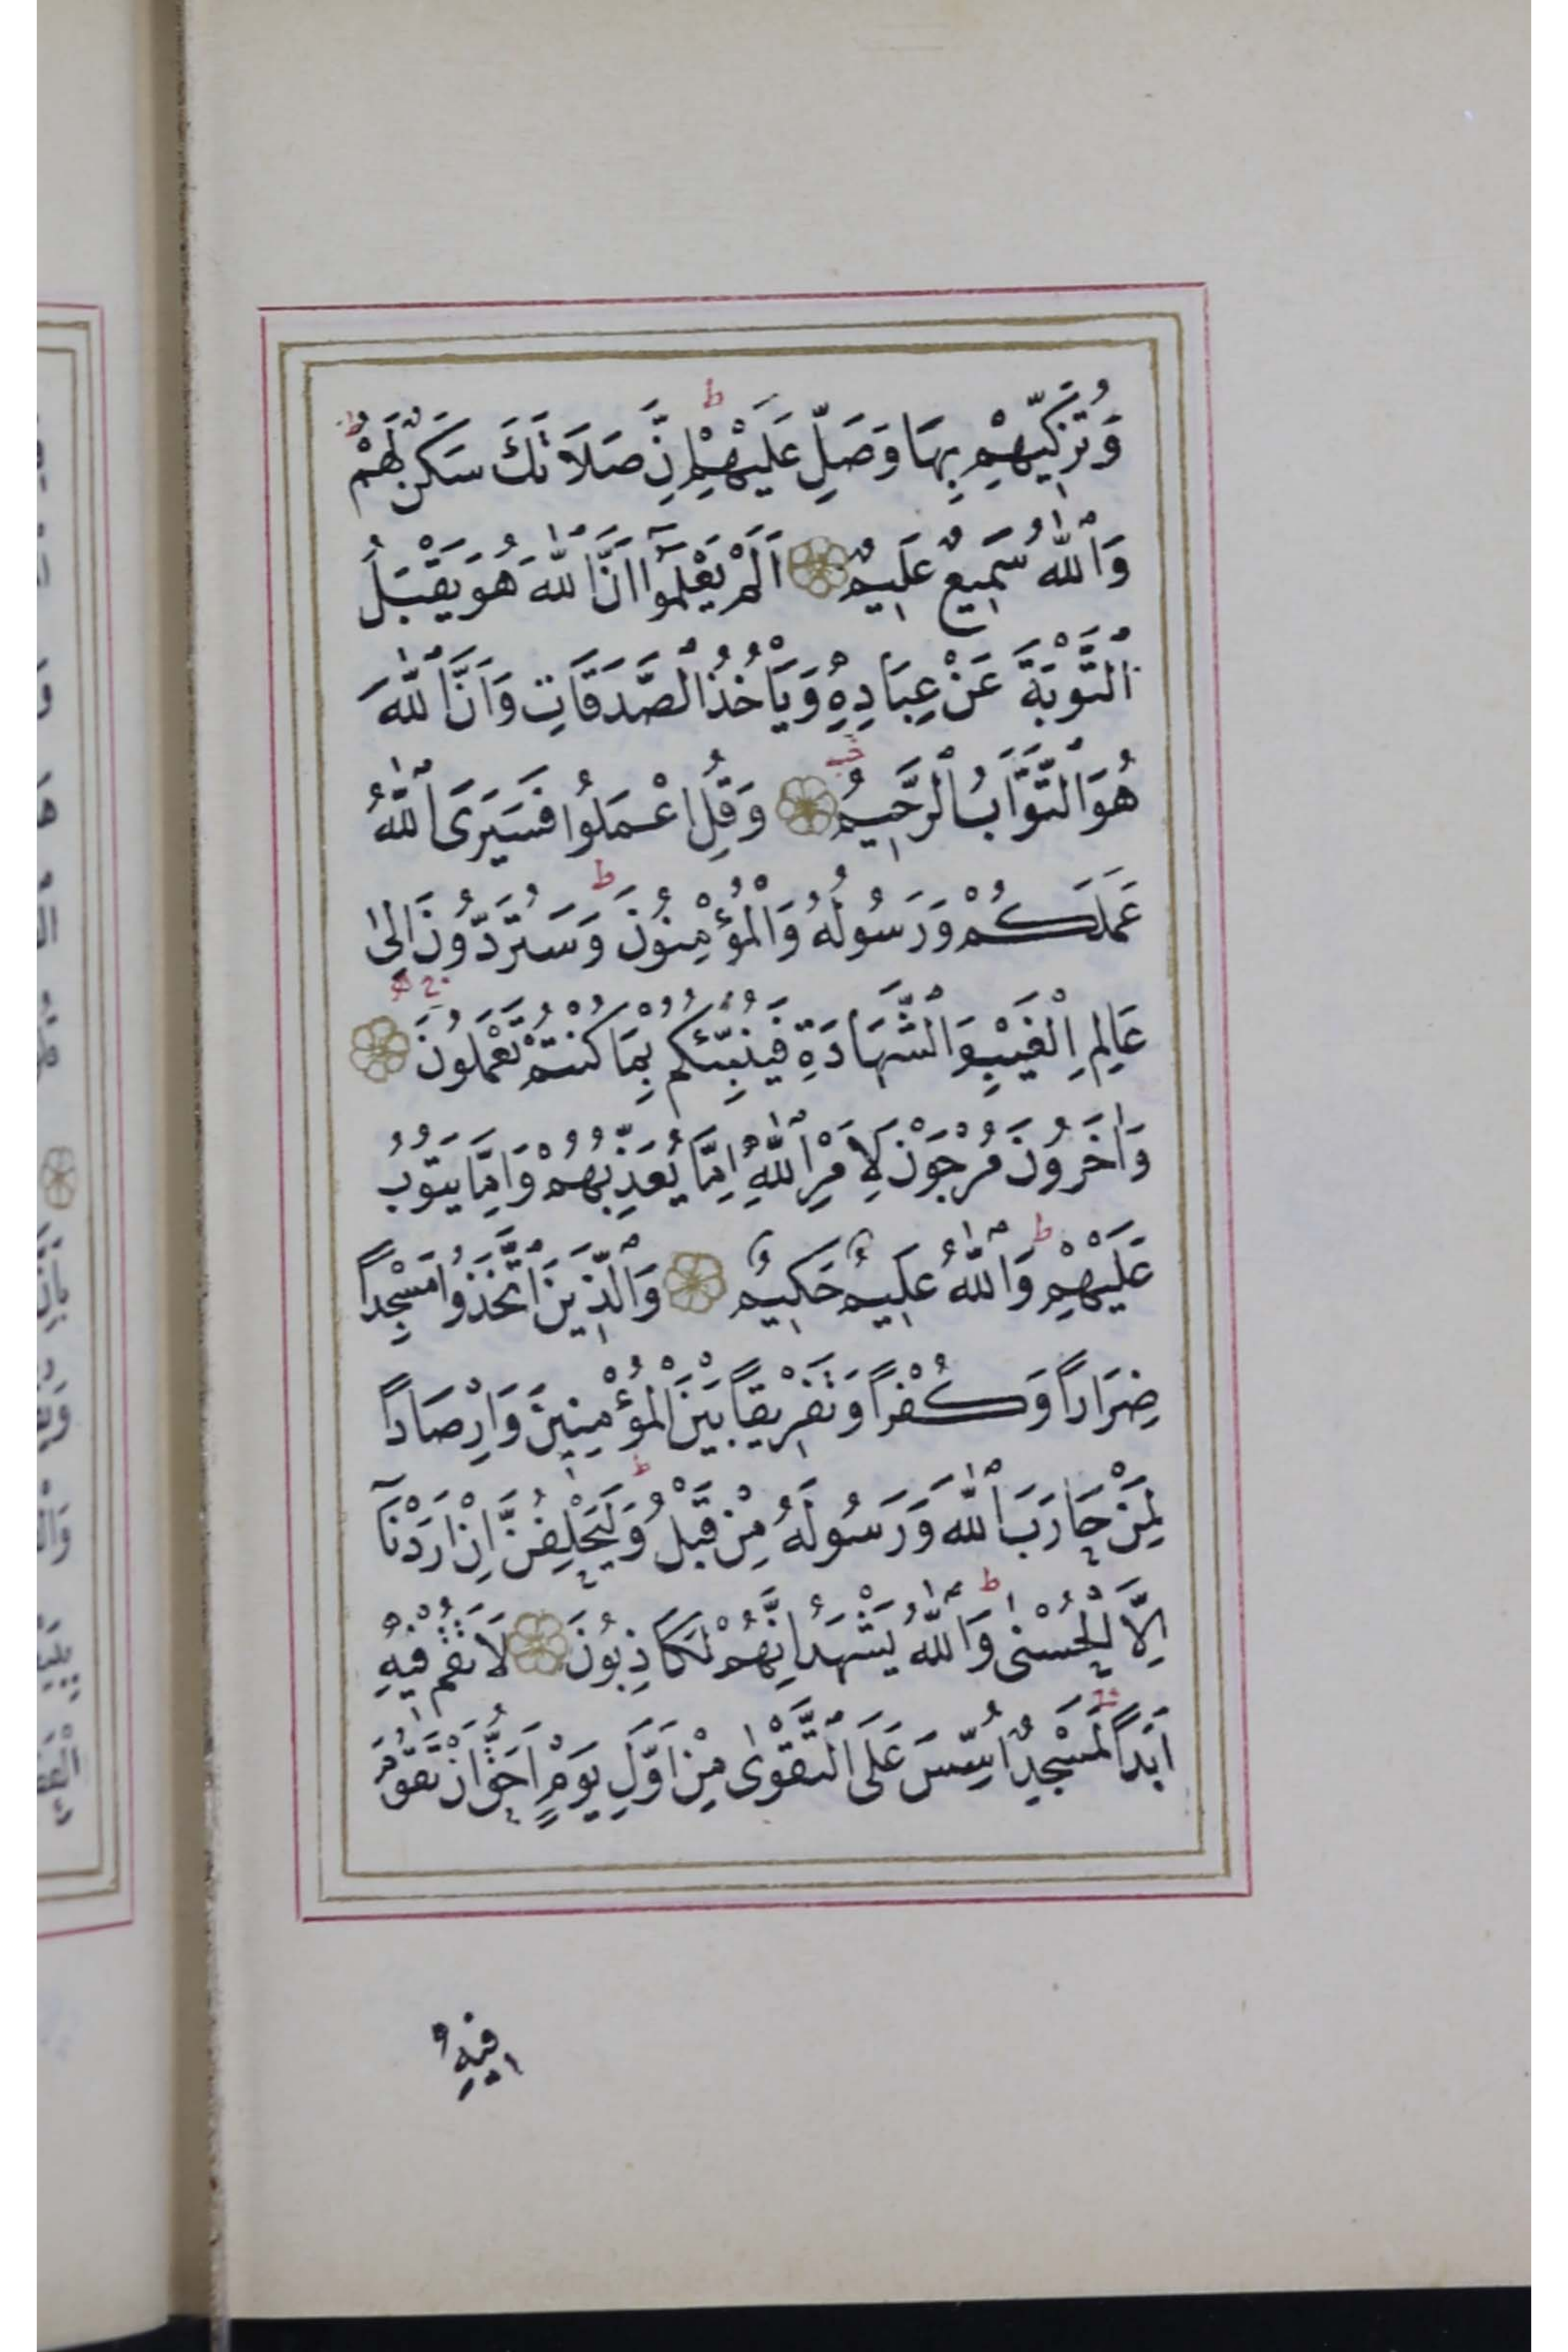 وَتُزَكِّيهِمْ بِهَا وَصَلِّ عَلَيْهِمْ اِنَّ صَلَاتَكَ سَكَنٌ لَهُمْ
وَاللّٰهُ سَمِيعٌ عَلِيمٌ اَلَمْ يَعْلَمُٓوا اَنَّ اللّٰهَ هُوَ يَقْبَلُ
التَّوْبَةَ عَنْ عِبَادِهِ وَيَأْخُذُ الصَّدَقَاتِ وَاَنَّ اللّٰهَ
هُوَ التَّوَّابُ الرَّحِيمُ وَقُلِ اعْمَلُوا فَسَيَرَى اللّٰهُ
عَمَلَكُمْ وَرَسُولُهُ وَالْمُؤْمِنُونَ وَسَتُرَدُّونَ اِلٰى
عَالِمِ الْغَيْبِ وَالشَّهَادَةِ فَيُنَبِّئُكُمْ بِمَا كُنْتُمْ تَعْمَلُونَ
وَاٰخَرُونَ مُرْجَوْنَ لِاَمْرِ اللّٰهِ اِمَّا يُعَذِّبُهُمْ وَاِمَّا يَتُوبُ
عَلَيْهِمْ وَاللّٰهُ عَلِيمٌ حَكِيمٌ وَالَّذِينَ اتَّخَذُوا مَسْجِداً
ضِرَاراً وَكُفْراً وَتَفْرِيقاً بَيْنَ الْمُؤْمِنِينَ وَاِرْصَاداً
لِمَنْ حَارَبَ اللّٰهَ وَرَسُولَهُ مِنْ قَبْلُ وَلَيَحْلِفُنَّ اِنْ اَرَدْنَٓا
اِلَّا الْحُسْنٰى وَاللّٰهُ يَشْهَدُ اِنَّهُمْ لَكَاذِبُونَ لَا تَقُمْ فِيهِ
اَبَداً لَمَسْجِدٌ اُسِّسَ عَلَى التَّقْوٰى مِنْ اَوَّلِ يَوْمٍ اَحَقُّ اَنْ تَقُومَ
فِيهِ